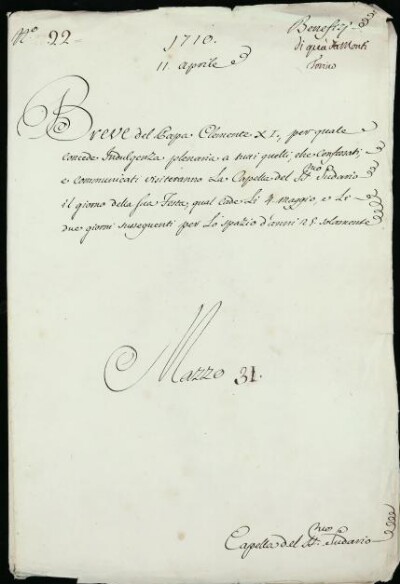 N.º 22.
1710.
11 Aprile
Benefizj
di qua da Monti
Torino
Breve del Papa Clemente XI, per quale
concede Indulgenza plenaria a tutti quelli, che confessati,
e communicati visiteranno La Capella del SS.mo Sudario
il giorno della sua Festa, qual cade Li 4 Maggio, e Li
due giorni susseguenti per Lo spazio d'anni 25 solamente
Mazzo 31.
Capella del SS.mo Sudario